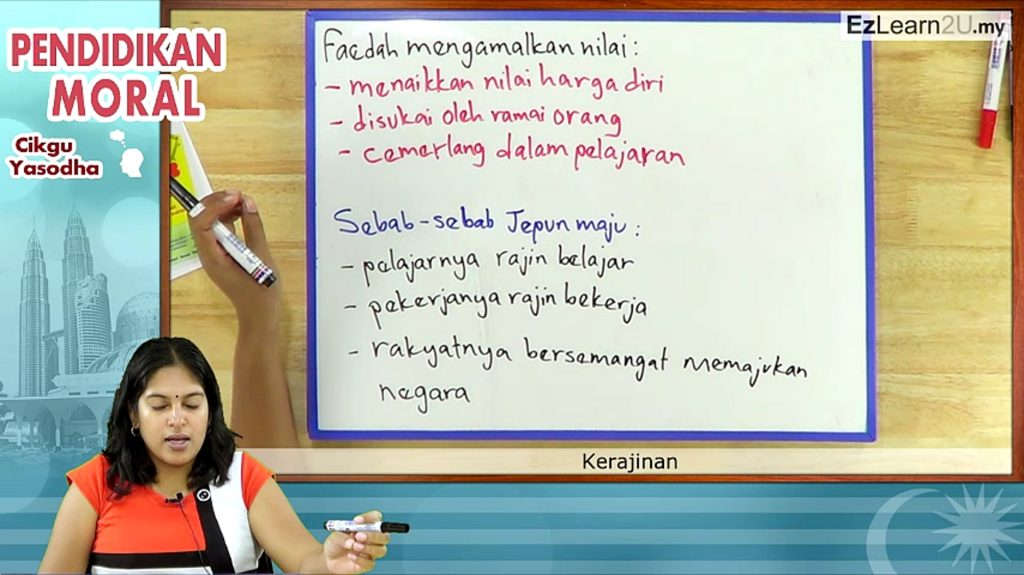 PENDIDIKAN
MORAL
Cikgu
Yasodha
EzLearn2U.my
Faedah mengamalkan nilai:
- menaikkan nilai harga diri
- disukai oleh ramai orang
- cemerlang dalam pelajaran
Sebab-sebab Jepun maju:
- pelajarnya rajin belajar
- pekerjanya rajin bekerja
- rakyatnya bersemangat memajukan
negara
Kerajinan